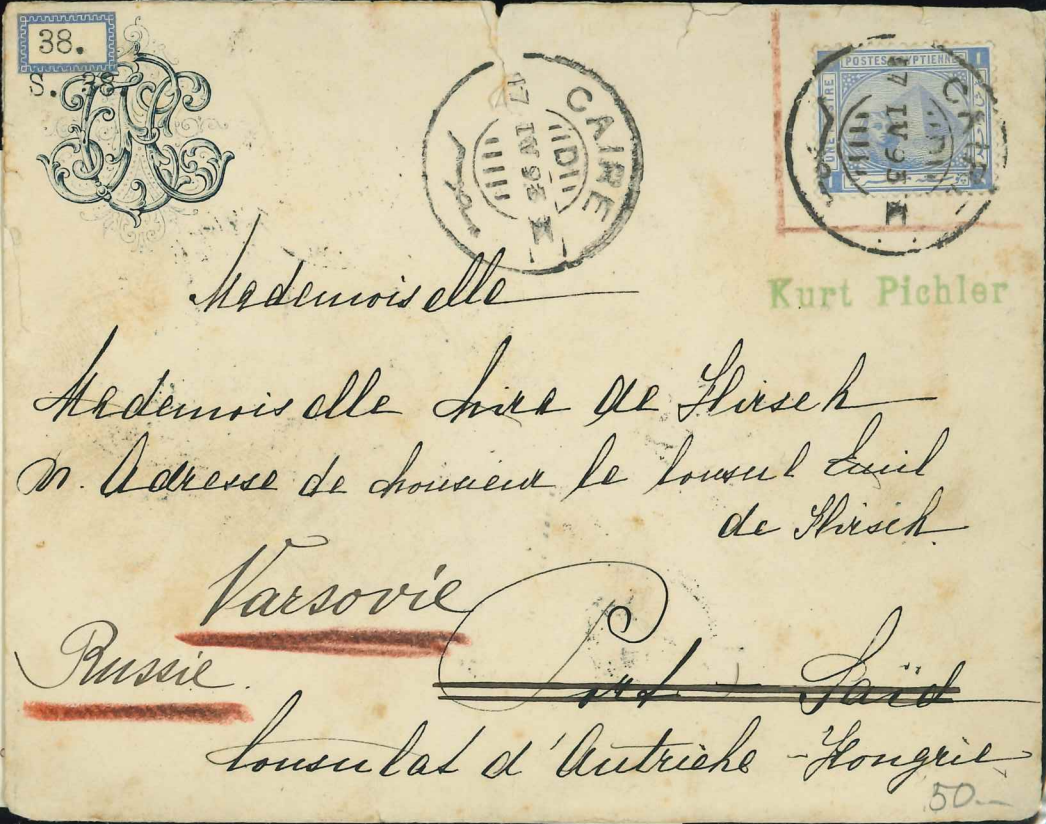 38.
S. 38
CAIRE
D
17 IV 95 X
POSTES EGYPTIENNES
UNE PIASTRE
CAIRE
D
17 IV 95 X
Kurt Pichler
Mademoiselle
Mademoiselle Mira de Hirsch
p. Adresse de Monsieur le Consul Emil
de Hirsch
Varsovie
Russie.
Port-Saïd
Consulat d'Autriche-Hongrie
50.-